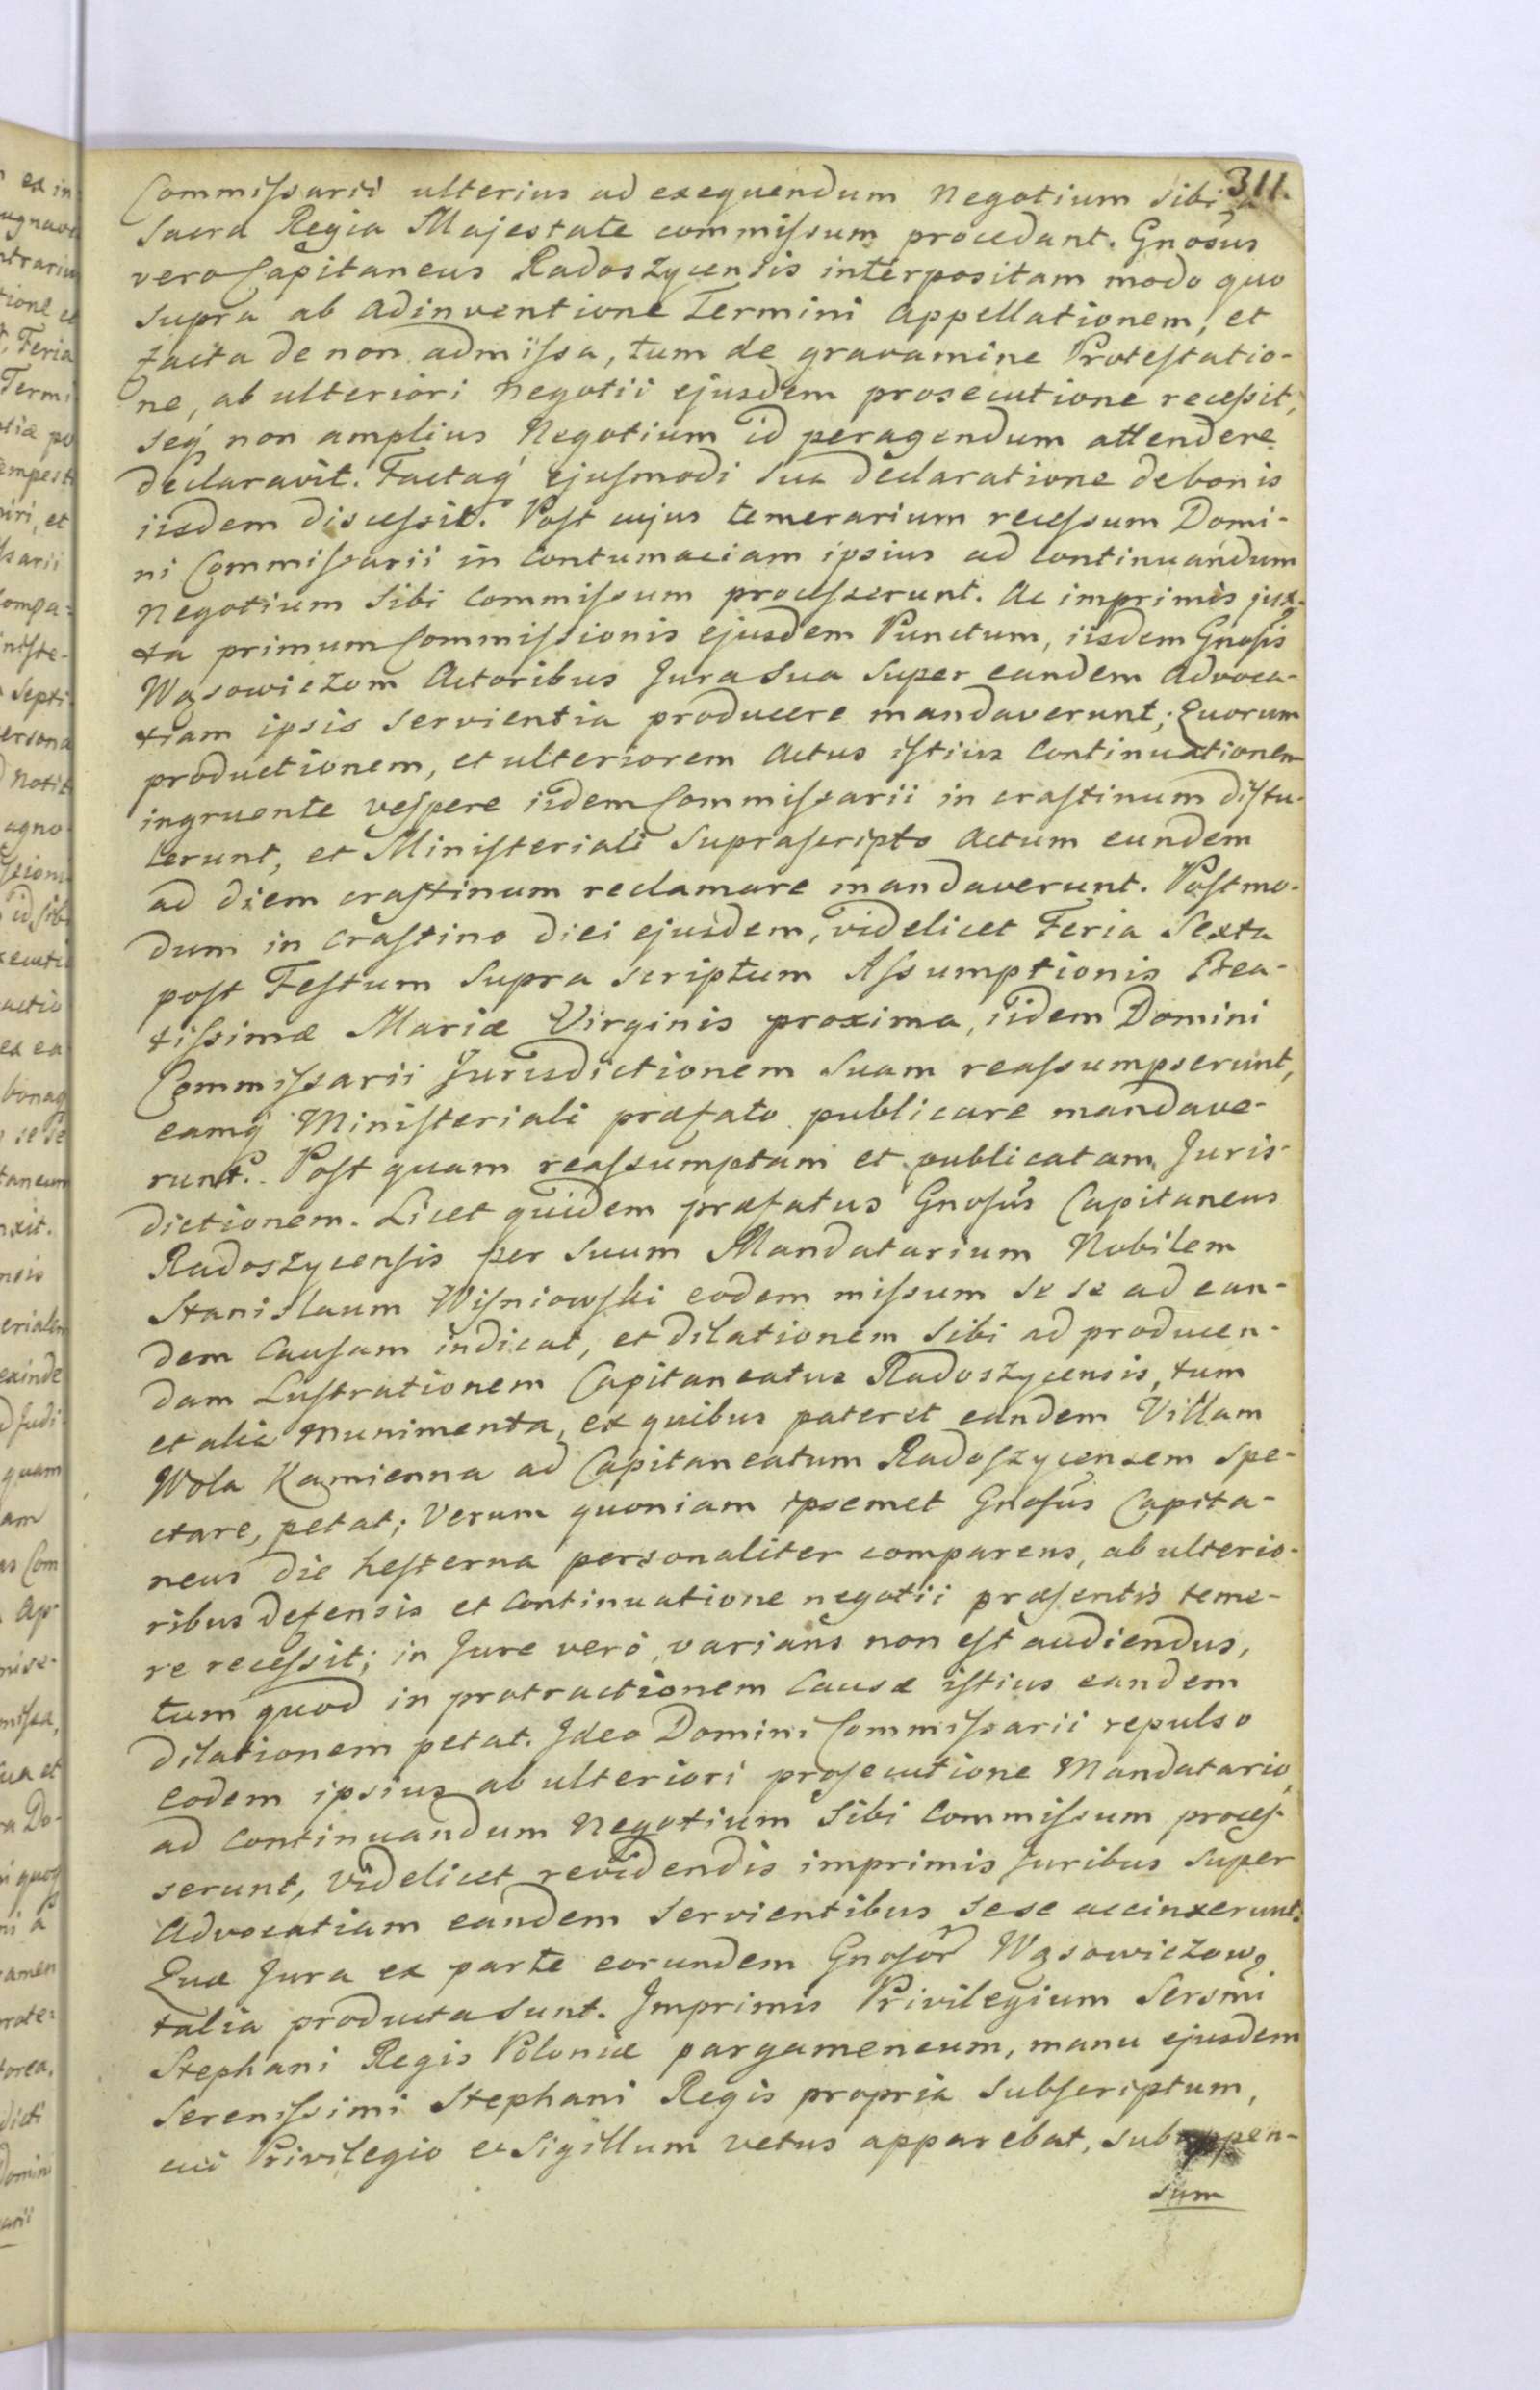 311.
Commissarii ulterius ad exequendum Negotium sibi a
Sacra Regia Majestate commissum procedant. Gnosus
vero Capitaneus Radoszycensis interpositam modo quo
supra ab adinventione Termini Appellationem, et
facta de non admissa, tum de gravamine Protestatio-
ne, ab ulteriori negotii ejusdem prosecutione recessit,
seq non amplius Negotium id peragendum attendere
declaravit. Factaq ejusmodi sua declaratione de bonis
iisdem discessit. Post cujus temerarium recessum Domi-
ni Commissarii in contumaciam ipsius ad continuandum
Negotium sibi commissum processerunt. Ac imprimis jux-
ta primum Commissionis ejusdem Punctum, iisdem Gnosis
Wąsowiczom Actoribus Jura sua super eandem Advoca-
tiam ipsis servientia producere mandaverunt; Quorum
productionem, et ulteriorem Actus istius continuationem
ingruente vespere iidem Commissarii in crastinum distu-
lerunt, et Ministeriali suprascripto Actum eundem
ad diem crastinum reclamare mandaverunt. Postmo-
dum in crastino diei ejusdem, videlicet Feria Sexta
post Festum supra scriptum Assumptionis Bea-
tissimæ Mariæ Virginis proxima, iidem Domini
Commissarii Jurisdictionem suam reassumpserunt,
eamq Ministeriali præfato publicare mandave-
runt. Post quam reassumptam et publicatam Juris-
dictionem. Licet quidem præfatus Gnosus Capitaneus
Radoszycensis per suum Mandatarium Nobilem
Stanislaum Wisniowski eodem missum se se ad ean-
dem causam indicat, et dilationem sibi ad producen-
dam Lustrationem Capitaneatus Radoszycensis, tum
et alia munimenta, ex quibus pateret eandem Villam
Wola Kamienna ad Capitaneatum Radoszycensem spe-
ctare, petat; Verum quoniam ipsemet Gnosus Capita-
neus die hesterna personaliter comparens, ab ulterio-
ribus defensis et continuatione negotii præsentis teme-
re recessit; in Jure verò, varians non est audiendus,
tum quod in protractionem Causæ istius eandem
dilationem petat. Ideo Domini Commissarii repulso
eodem ipsius ab ulteriori prosecutione Mandatario,
ad continuandum Negotium sibi commissum proces-
serunt, videlicet revidendis imprimis Juribus super
Advocatiam eandem servientibus sese accinxerunt.
Quæ Jura ex parte eorundem Gnosor Wąsowiczow
talia producta sunt. Imprimis Privilegium Sersmi
Stephani Regis Poloniæ pargameneum, manu ejusdem
Serenissimi Stephani Regis propria subscriptum,
cui Privilegio et Sigillum vetus apparebat, subappen-
sum